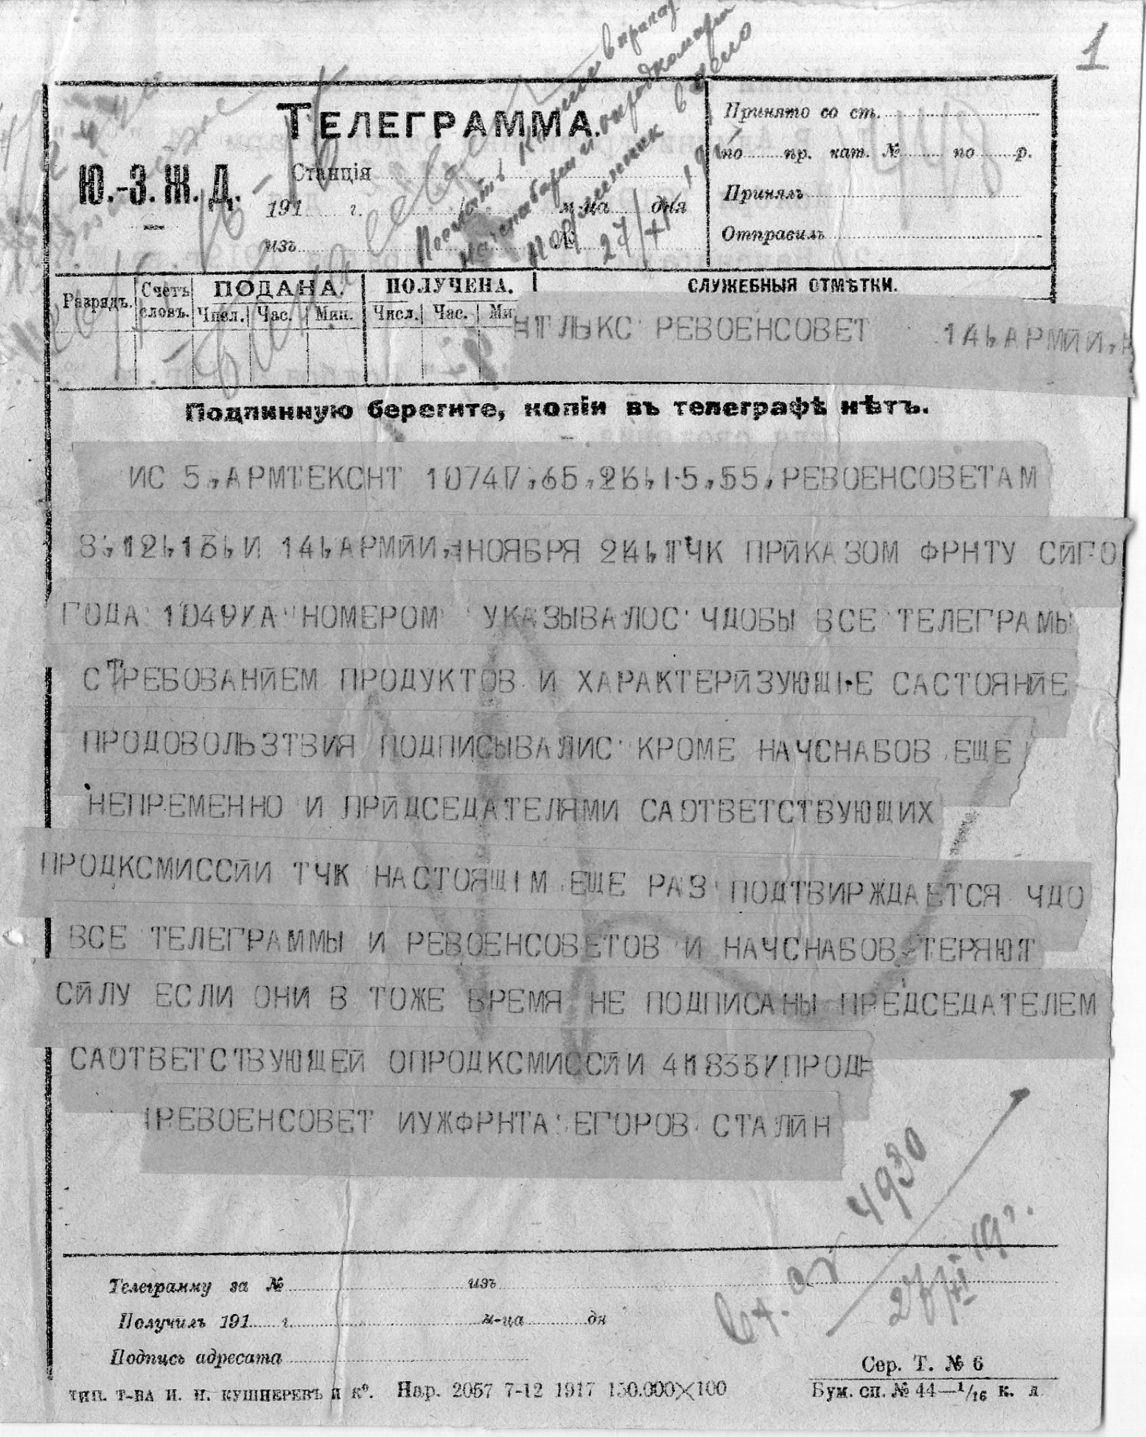 1
ТЕЛЕГРАММА.
Ю.-З. Ж. Д.
Станція
191 г. м-ца дня
изъ №
Принято со ст.
по пр. кат. № по р.
Принялъ
Отправилъ
27/XI 19
Разрядъ. Счетъ словъ. ПОДАНА. ПОЛУЧЕНА. СЛУЖЕБНЫЯ ОТМѢТКИ.
Числ. Час. Мин. Числ. Час. Ми
РЕВОЕНСОВЕТ 14Ь АРМЙИ,
Подлинную берегите, копіи въ телеграфѣ нѣтъ.
ИС 5,АРМТЕКСНТ 10741,65,26,15,55,РЕВОЕНСОВЕТАМ
8,12,13,И 14,АРМЙИ, НОЯБРЯ 24, ТЧК ПРЙКАЗОМ ФРНТУ СЙГО
ГОДА 1049/А НОМЕРОМ УКАЗЫВАЛОС ЧДОБЫ ВСЕ ТЕЛЕГРАМЫ
СТРЕБОВАНЙЕМ ПРОДУКТОВ И ХАРАКТЕРЙЗУЮЩІЕ САСТОЯНЙЕ
ПРОДОВОЛЬЗТВИЯ ПОДПИСЫВАЛИС КРОМЕ НАЧСНАБОВ ЕЩЕ
НЕПРЕМЕННО И ПРЙДСЕДАТЕЛЯМИ САОТВЕТСТВУЮЩИХ
ПРОДКСМИССЙИ ТЧК НАСТОЯЩІМ ЕЩЕ РАЗ ПОДТВИРЖДАЕТСЯ ЧДО
ВСЕ ТЕЛЕГРАММЫ И РЕВОЕНСОВЕТОВ И НАЧСНАБОВ ТЕРЯЮТ
СЙЛУ ЕСЛИ ОНИ В ТОЖЕ ВРЕМЯ НЕ ПОДПИСАНЫ ПРЕДСЕДАТЕЛЕМ
САОТВЕТСТВУЮЩЕЙ ОПРОДКСМИССЙИ
РЕВОЕНСОВЕТ ИУЖФРНТА ЕГОРОВ СТАЛЙН
4930
27/XI 19 г.
Телеграмму за № изъ
Получилъ 191 г. м-ца дн
Подпись адресата
ТИП. Т-ВА И. Н. КУШНЕРЕВЪ И Ко. Нар. 2057 7-12 1917 150.000×100
Сер. Т. № 6
Бум. сп. № 44—1/16 к. л